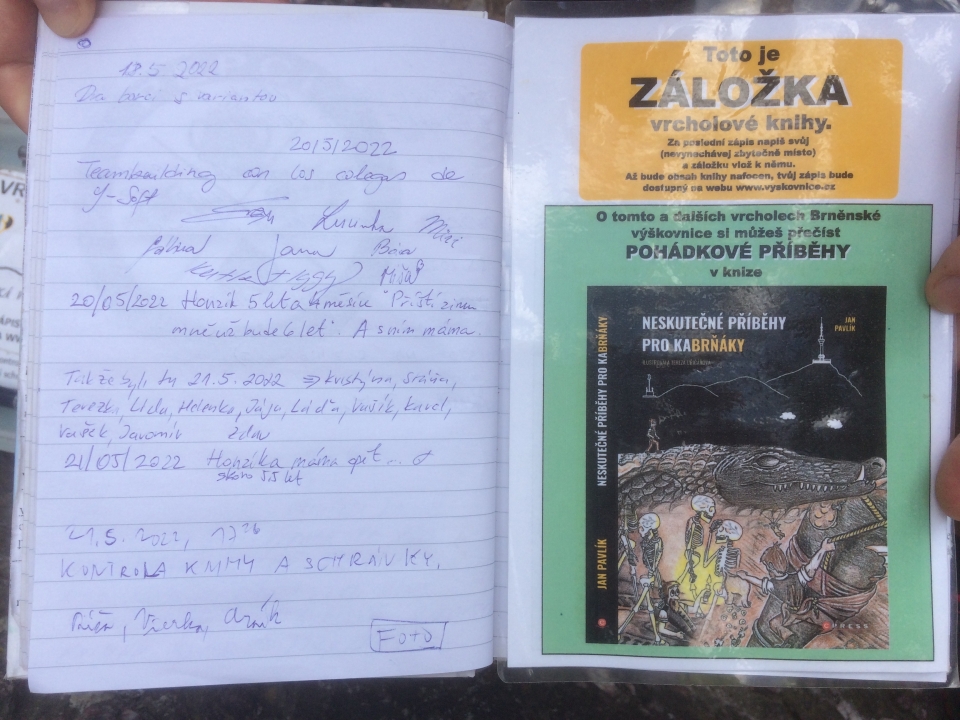 18.5 2022
Dva borci s variantou
20/5/2022
Teambuilding con los colegas de
Y-Soft
Jana Bára
Míša
20/05/2022 Honzík 5 let a 4 měsíce "Příští zimu
mně už bude 6 let". A s ním máma.
Takže byli tu 21.5.2022 => Kristýna,
Terezka, Lída, Helenka, Jája, Láďa, Vašík, Karel,
Vašek, Jaromír zdar
21/05/2022 Honzíka máma opět...
skoro 5,5 let
21.5.2022, 13 26
KONTROLA KNIHY A SCHRÁNKY.
Víerka,
FOTO
Toto je
ZÁLOŽKA
vrcholové knihy.
Za poslední zápis napiš svůj
(nevynechávej zbytečně místo)
a záložku vlož k němu.
Až bude obsah knihy nafocen, tvůj zápis bude
dostupný na webu www.vyskovnice.cz
O tomto a dalších vrcholech Brněnské
výškovnice si můžeš přečíst
POHÁDKOVÉ PŘÍBĚHY
v knize
NESKUTEČNÉ PŘÍBĚHY
PRO KABRŇÁKY
JAN
PAVLÍK
NESKUTEČNÉ PŘÍBĚHY PRO KABRŇÁKY
JAN PAVLÍK
CPRESS